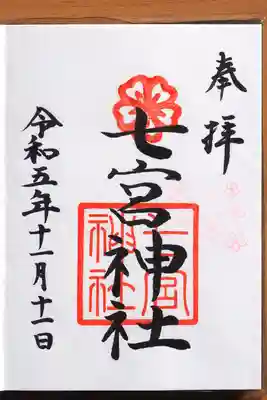 奉拝
七宮神社
七宮
神社
令和五年十一月十一日